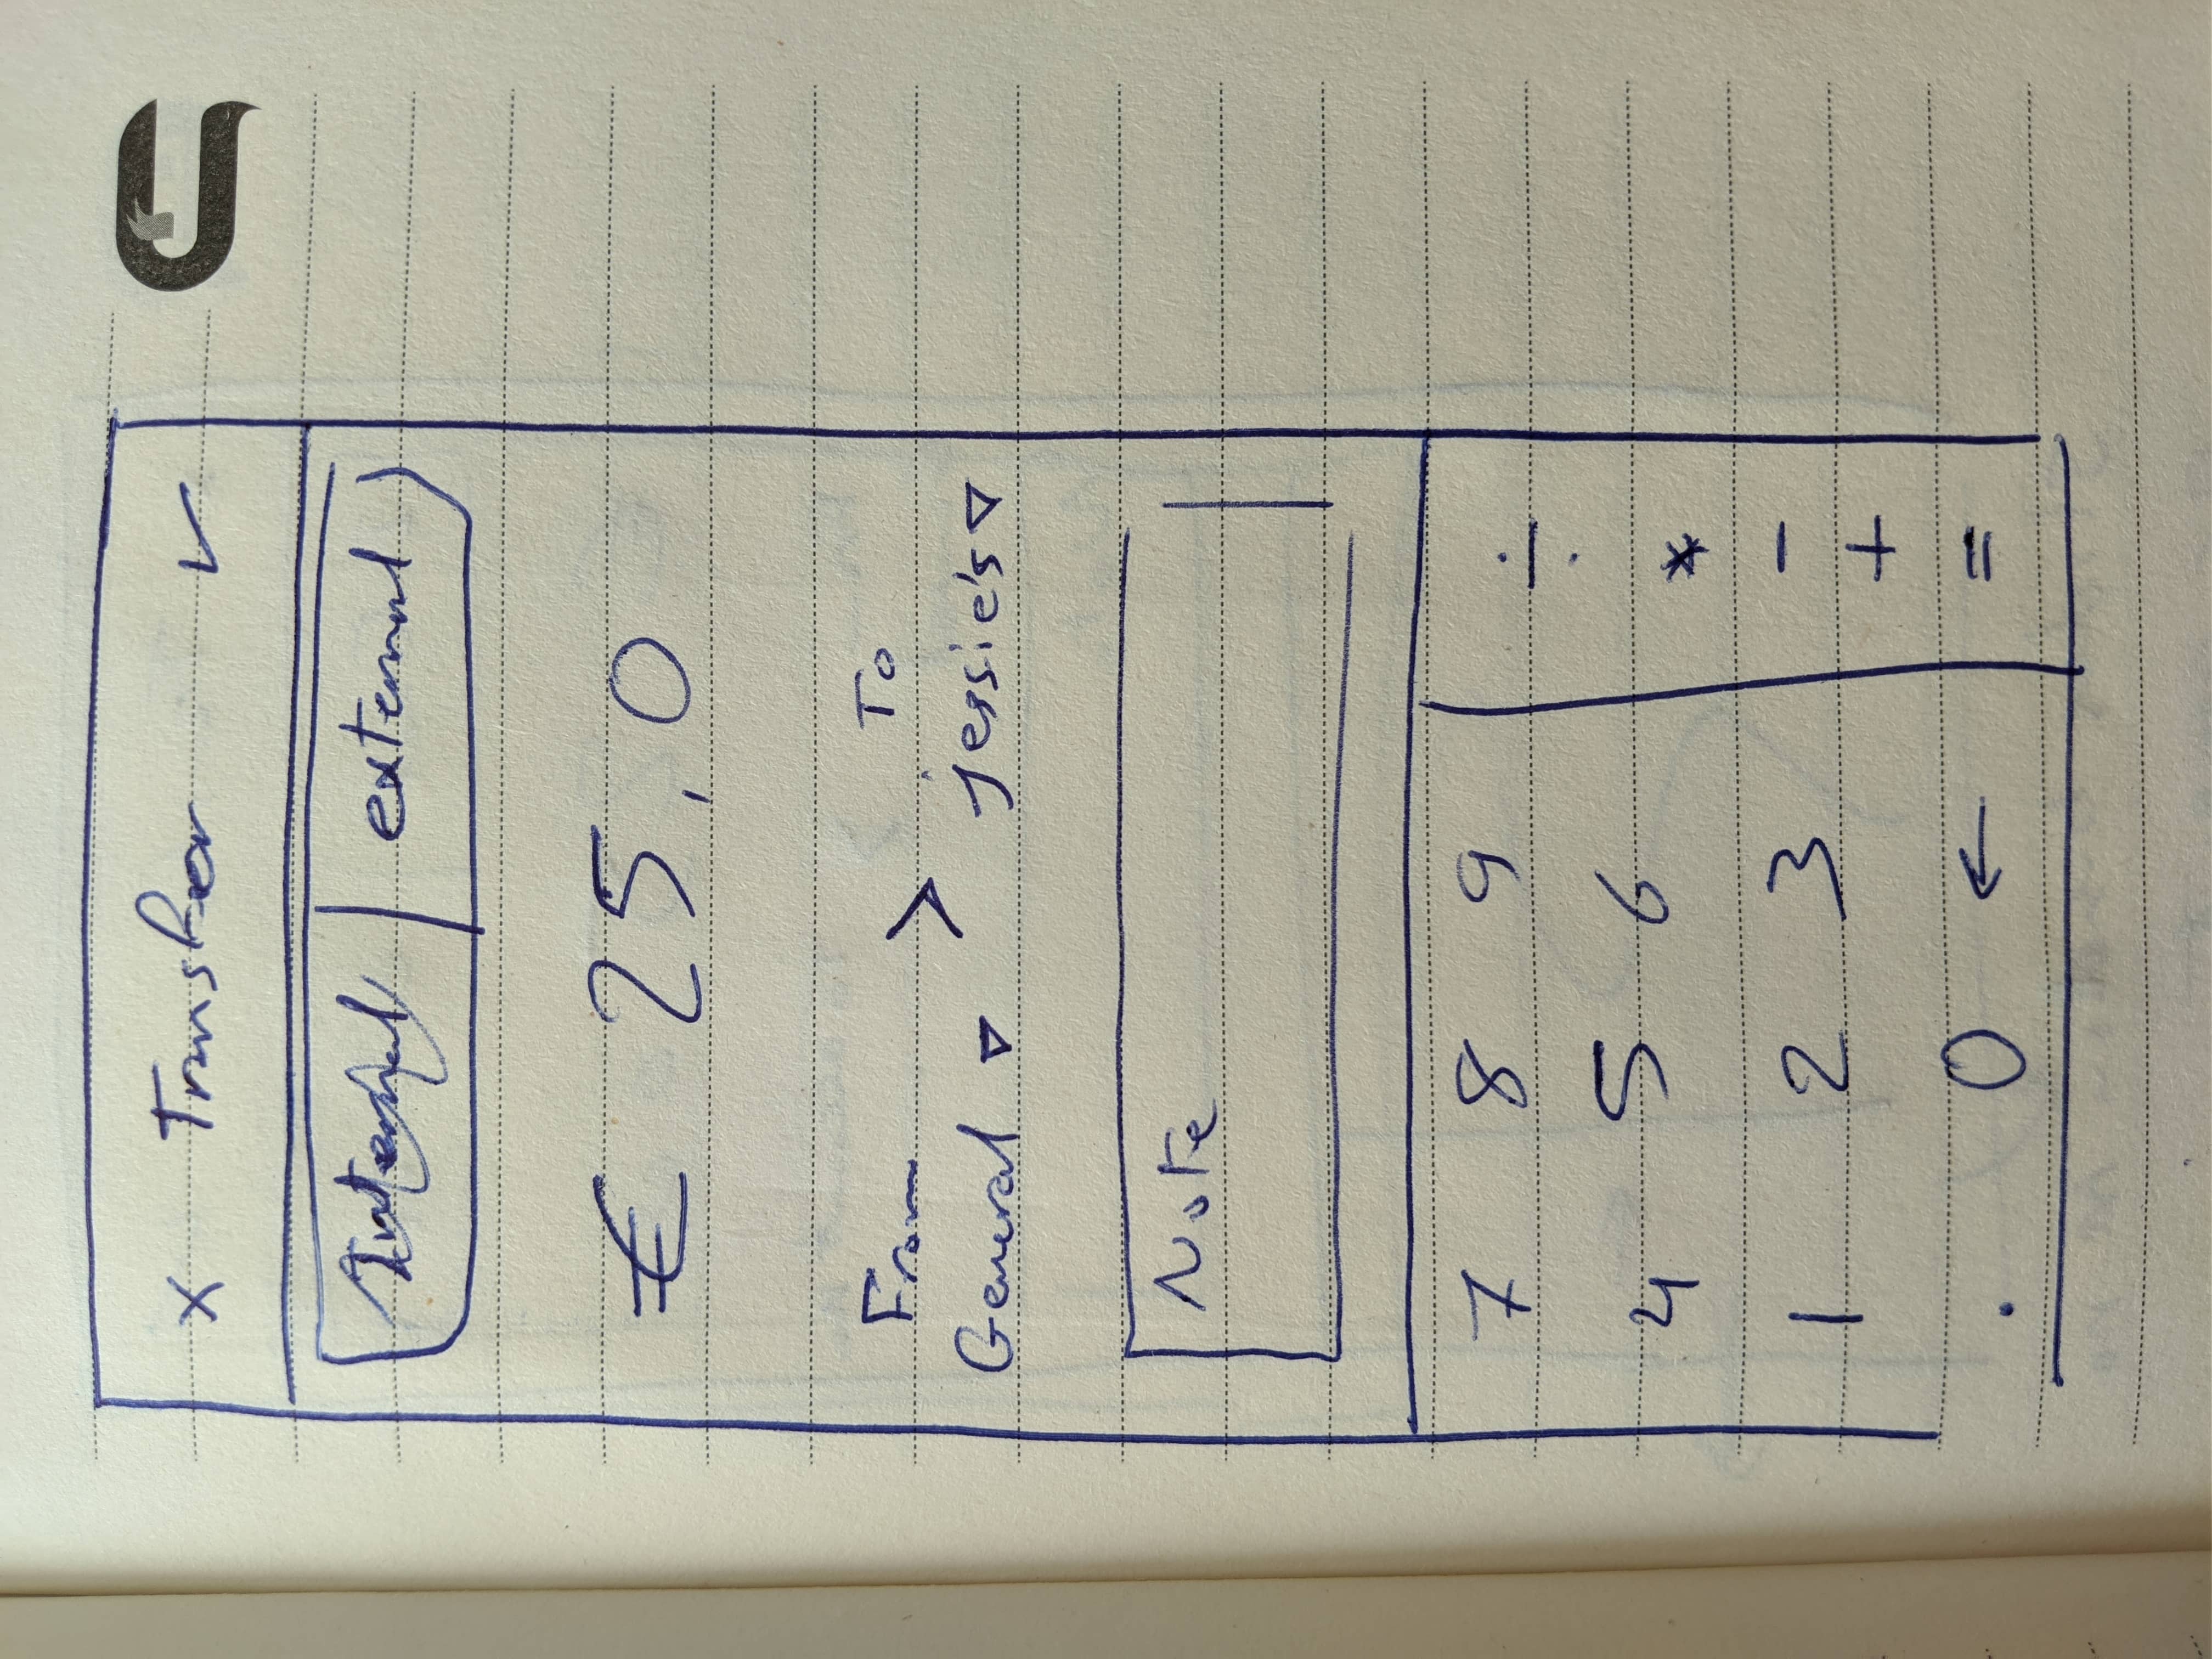 x Transfer ✓
Internal / external
€ 25,0
From > To
General ▽ jessie's ▽
Note
7 8 9 ÷
4 5 6 *
1 2 3 -
+
. 0 ← =